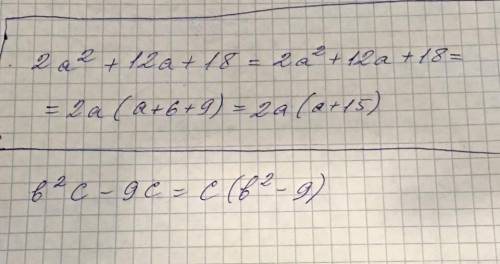 2a² + 12a + 18 = 2a² + 12a + 18 =
= 2a (a + 6 + 9) = 2a (a + 15)
в²c - 9c = c (в² - 9)